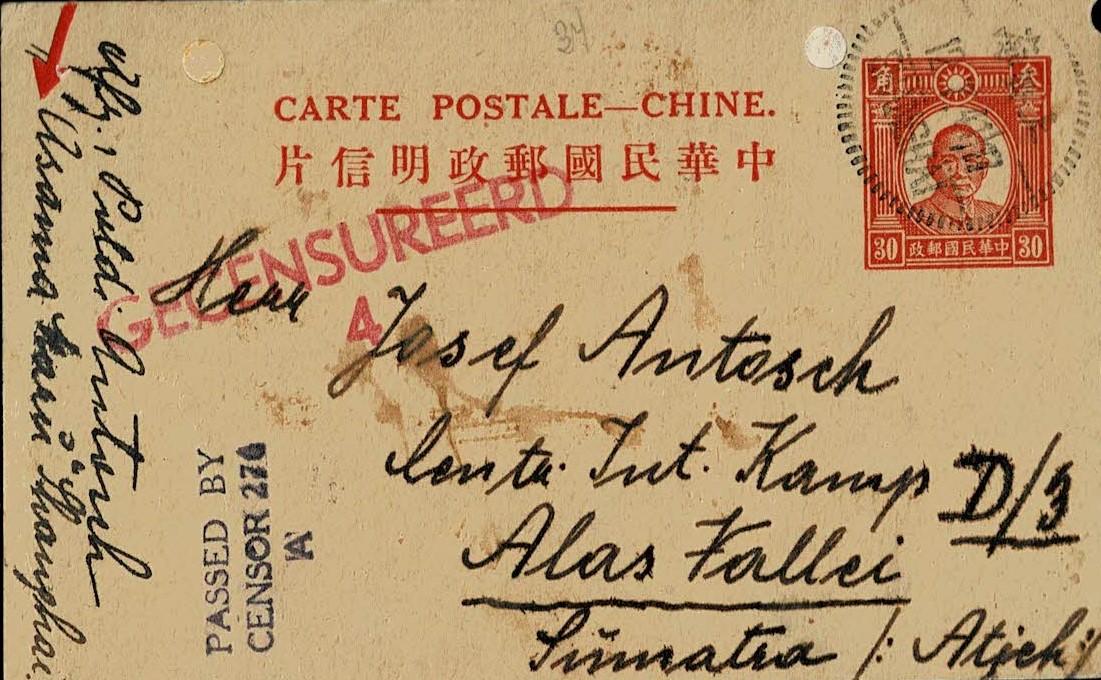 34
CARTE POSTALE—CHINE.
片信明政郵國民華中
角 叁
30 政郵國民華中 30
GECENSUREERD
4
Herr
Josef Antosch
Centr. Int. Kamp D/3
Alas Vallei
Sŭmatra /: Atjeh:/
PASSED BY
CENSOR 274
A
Antosch
Shanghai